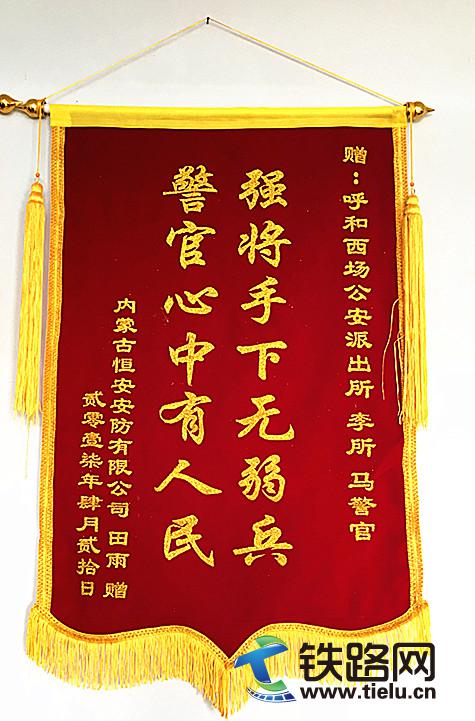 赠：呼和西场公安派出所 李所 马警官
强将手下无弱兵
警官心中有人民
内蒙古恒安安防有限公司 田雨 赠
贰零壹柒年肆月贰拾日
铁路网
www.tielu.cn